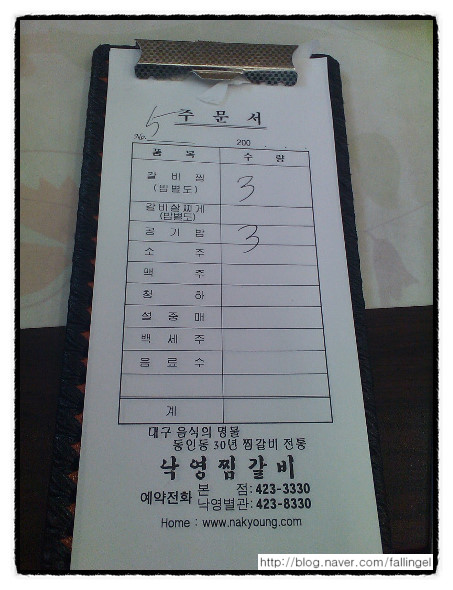 주문서
No. 5
200 . . .
품목 수량
갈비찜 (밥별도) 3
갈비살찌게 (밥별도)
공기밥 3
소주
맥주
청하
설중매
백세주
음료수
계
대구 음식의 명물
동인동 30년 찜갈비 전통
낙영찜갈비
예약전화 본 점: 423-3330
낙영별관: 423-8330
Home : www.nakyoung.com
http://blog.naver.com/fallingel